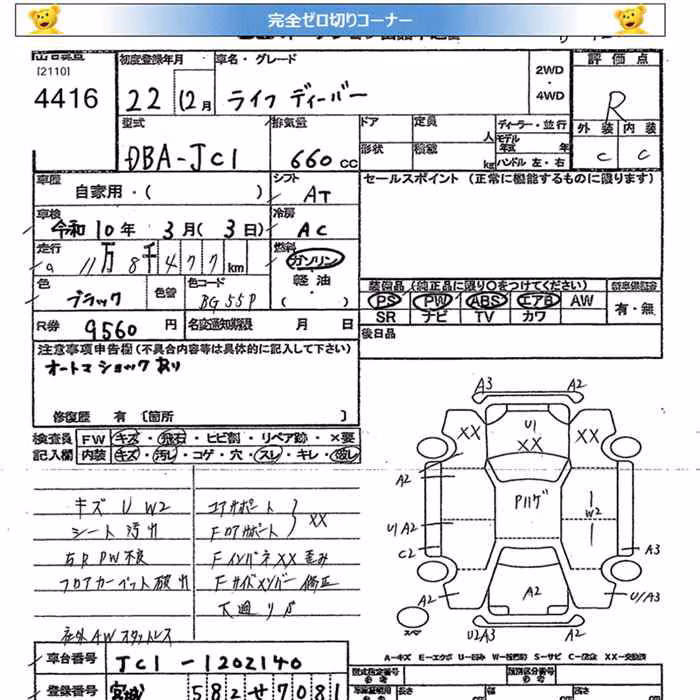 完全ゼロ切りコーナー
[2110]
4416
初度登録年月
22 12月
車名・グレード
ライフ ディーバー
2WD
・
4WD
評価点
R
外装 内装
C C
型式
DBA-JC1
排気量
660 cc
ドア 定員 人
形状 積載 kg
ディーラー・並行
モデル年式 年
ハンドル 左・右
車歴
自家用・( )
シフト
AT
セールスポイント (正常に機能するものに限ります)
車検
令和10年 3月(3日)
冷房
AC
走行
11万8千477km
燃料
ガソリン
軽油
( )
色
ブラック
色替
色コード
BG55P
装備品 (純正品に限り○をつけてください)
PS PW ABS エアB AW
SR ナビ TV カワ
有・無
R券 9560円
名変通知期限 月 日
後日品
注意事項申告欄 (不具合内容等は具体的に記入して下さい)
オートマ ショック あり
修復歴 有 〔箇所 〕
検査員 FW キズ・飛石・ヒビ割・リペア跡・×要
記入欄 内装 キズ・汚れ・コゲ・穴・スレ・キレ・
キズ U W2
シート汚れ
右R PW不良
フロアカーペット破れ
社外AWスタットレス
コアサポート
Fロアサポート
XX
Fインパネ XX 歪み
Fサイドメンバー 修正
下廻りサビ
A3 A2
XX U1 XX XX
A2
Pハゲ
W2
U1 A2
C2
A3
A2 A2 U1/A3
スペア
U2A3 A2
A-キズ E-エクボ U-凹み W-板金跡 S-サビ C-腐食 XX-交換済
車台番号 JC1-1202140
登録番号 宮城 582 せ 7081
型式指定番号
類別区分番号
長さ 幅 高さ